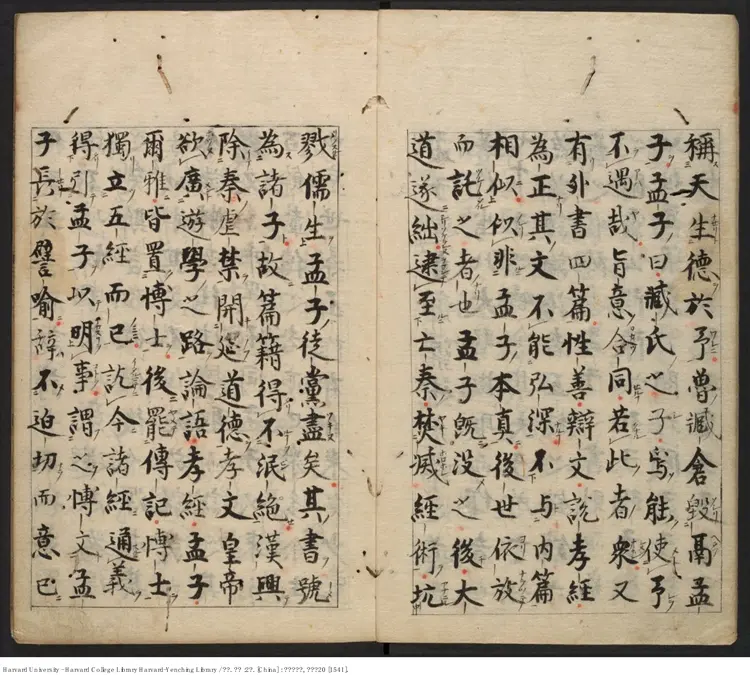 稱天生德於予魯臧倉毀鬲孟
子孟子曰臧氏之子焉能使予
不遇哉旨意合同若此者衆又
有外書四篇性善辯文說孝經
為正其文不能弘深不与內篇
相似似非孟子本真後世依放
而託之者也孟子既没之後大
道遂絀逮至亡秦焚滅經術坑
戮儒生孟子徒黨盡矣其書號
為諸子故篇籍得不泯絕漢興
除秦虐禁開延道德孝文皇帝
欲廣遊學之路論語孝經孟子
爾雅皆置博士後罷傳記博士
獨立五經而已訖今諸經通義
得引孟子以明事謂之博文孟
子長於譬喻辞不迫切而意已
Harvard University - Harvard College Library Harvard-Yenching Library / ??. ?? :2?. [China] : ?????, ???20 [1541].